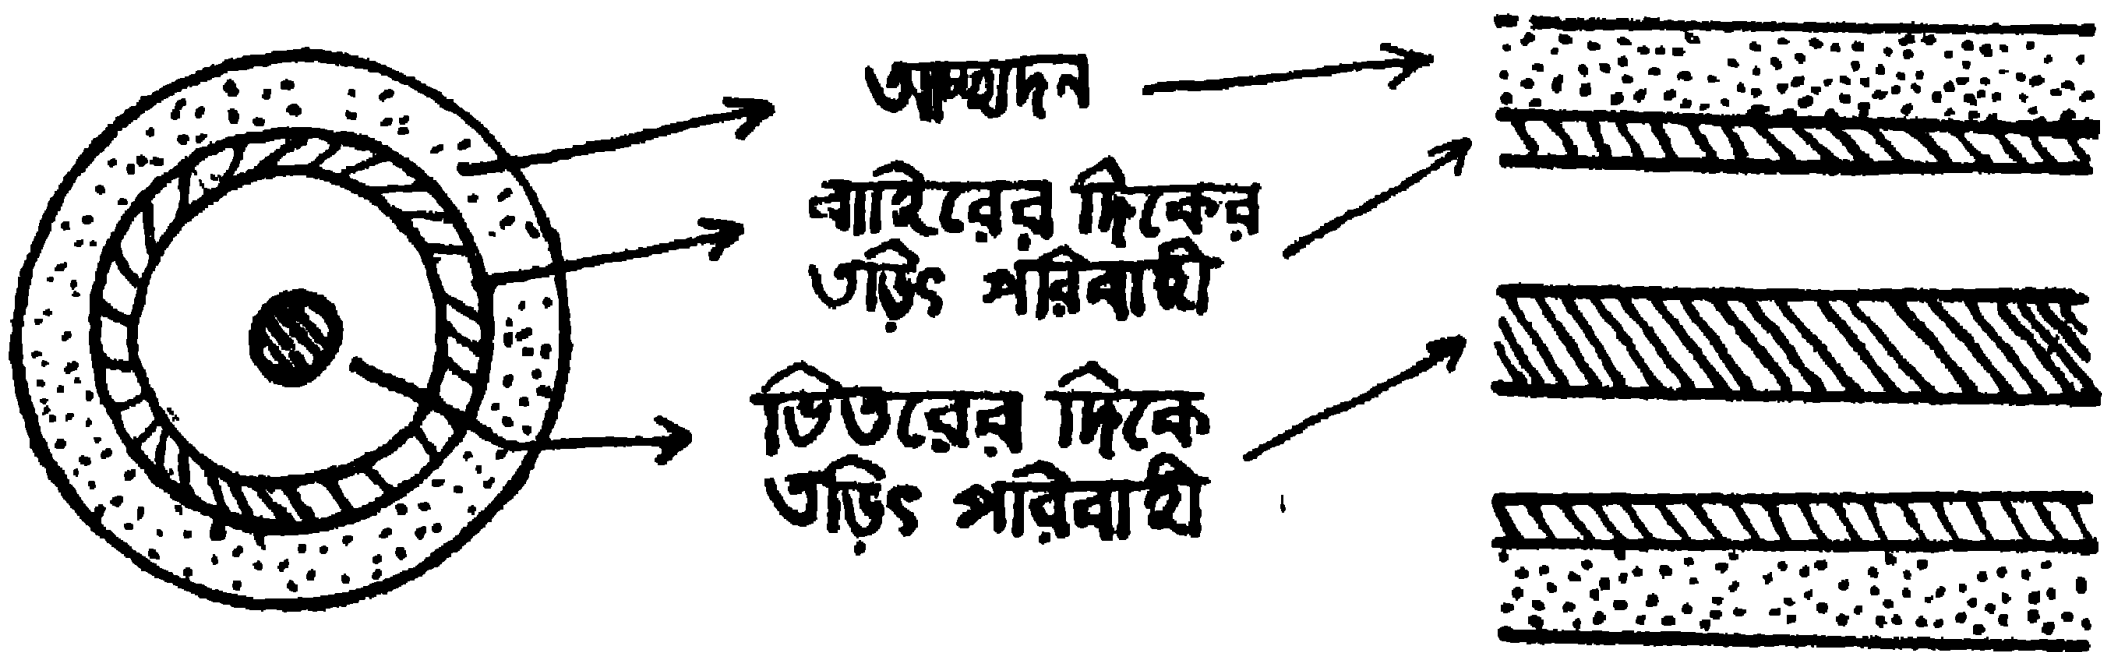 আচ্ছাদন
বাহিরের দিকের
তড়িৎ পরিবাহী
ভিতরের দিকে
তড়িৎ পরিবাহী